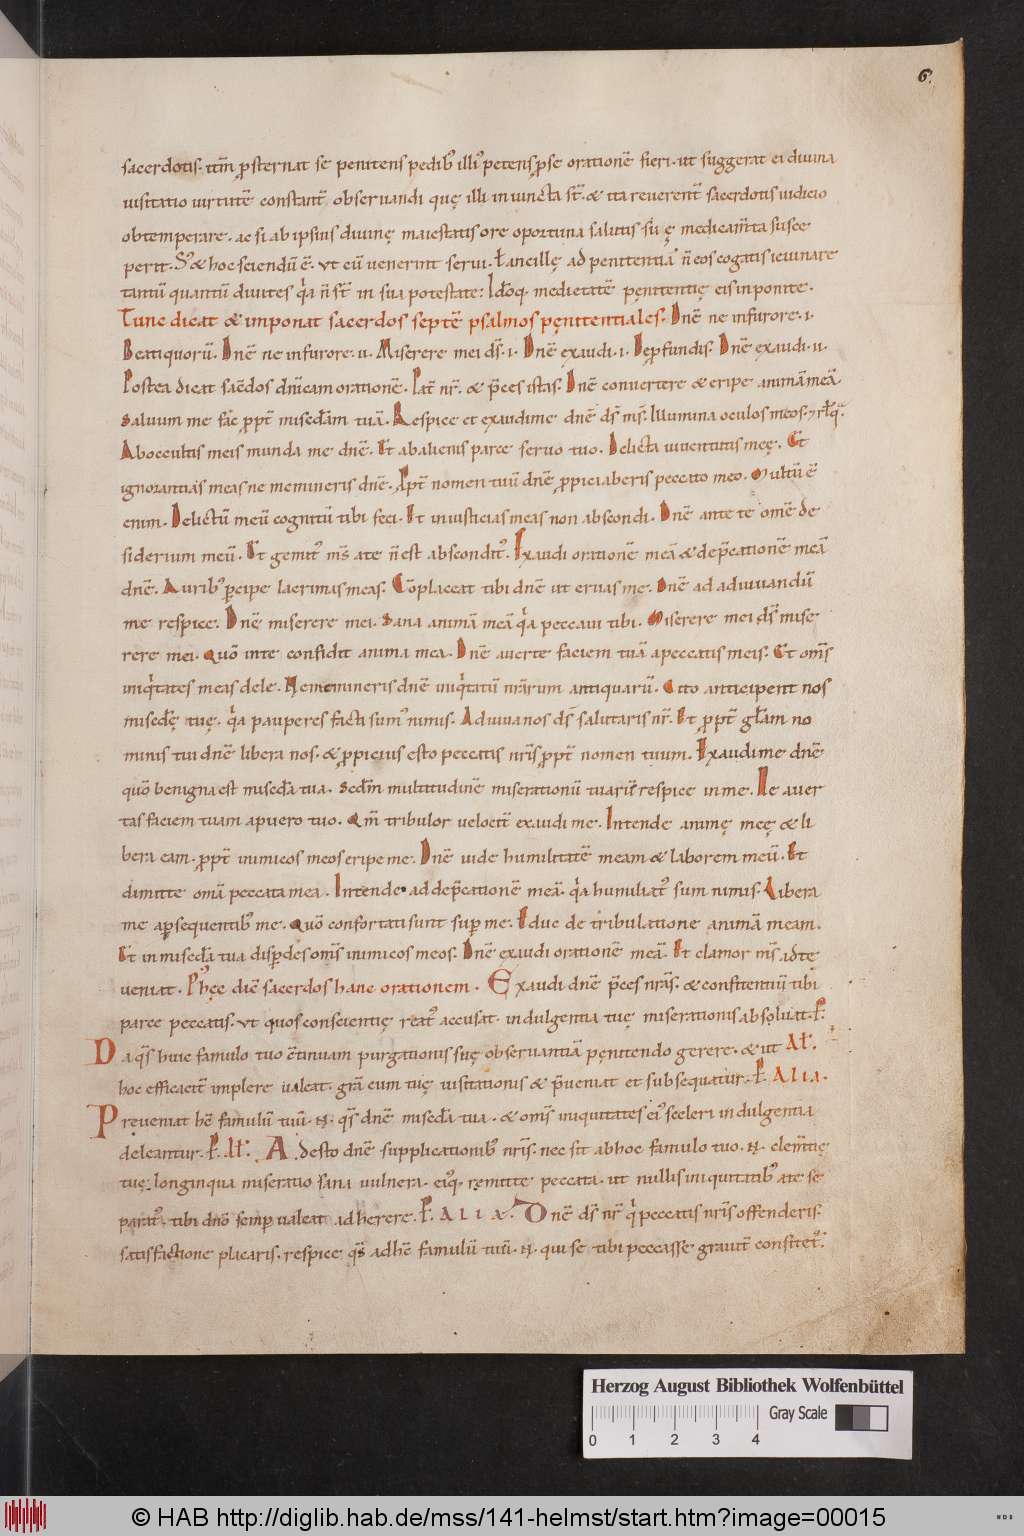 6.
sacerdotis. itm̄ ꝓsternat se penitens pedib; illi' petens ꝓ se oratione͞ fieri. ut suggerat ei diuina
uisitatio uirtute͞ constant͞ obseruandi que̜ illi iniuncta st͞. & ita reuerent͞ sacerdotis iudicio
obtemperare. ac si ab ipsius diuine̜ maiestatis ore oportuna salutis sue̜ medicam̄ta susce
perit. S; & hoc sciendu͞ e͞. ut cu͞ uenerint serui. ł ancille̜ ad penitentia͞ n͞ eos cogatis ieiunare
tantu͞ quantu͞ diuites q͛a n͞ st͞ in sua potestate: Idoq; medietate͞ pe̜nitentie̜ eis inponite.
Tunc dicat & imponat sacerdos septe͞ psalmos pe̜nitentiales. Dn͞e ne in furore. i.
Beati quoru͞. Dn͞e ne in furore. ii. Miserere mei ds͞. i. Dn͞e exaudi. i. De ꝓfundis. Dn͞e exaudi. ii.
Postea dicat sac͞dos dn͞icam oratione͞. Pat͞ nr͞. & p͞ces istas. Dn͞e conuertere & eripe anima͞ mea͞.
Saluum me fac ꝓpt͞ mise͞dam tua͞. Respice et exaudi me dn͞e ds͞ ms͞. Illumina oculos meos. ⁊ rl͞q.
Ab occultis meis munda me dn͞e. Et ab alienis parce seruo tuo. Delicta iuuentutis mee̜. Et
ignorantias meas ne memineris dn͞e. Ppt͞ nomen tuu͞ dn͞e ꝓpiciaberis peccato meo. Multu͞ e͞
enim. Delictu͞ meu͞ cognitu͞ tibi feci. Et iniusticias meas non abscondi. Dn͞e ante te om͞e de
siderium meu͞. Et gemit' ms͞ a te n͞ est abscondit'. Exaudi oratione͞ mea͞ & dep͞catione͞ mea͞
dn͞e. Aurib; ꝑcipe lacrimas meas. Co͞placeat tibi dn͞e ut eruas me. Dn͞e ad adiuuandu͞
me respice. Dn͞e miserere mei. Sana anima͞ mea͞ q͛a peccaui tibi. Miserere mei ds͞ mise
rere mei. Quo͞ in te confidit anima mea. Dn͞e auerte faciem tua͞ a peccatis meis. Et om͞s
iniq͛tates meas dele. Ne memineris dn͞e iniq͛tatu͞ nr͞arum antiquaru͞. Cito anticipent nos
mise͞de̜ tue̜. q͛a pauperes facti sum' nimis. Adiuua nos ds͞ salutaris nr͞. Et ꝓpt͞ gl͞am no
minis tui dn͞e libera nos. & ꝓpicius esto peccatis nr͞is ꝓpt͞ nomen tuum. Exaudi me dn͞e
quo͞ benigna est mise͞da tua. Sed͞m multitudine͞ miserationu͞ tuaru͞ respice in me. Ne auer
tas faciem tuam a puero tuo. Qm͞ tribulor uelocit͞ exaudi me. Intende anime̜ mee̜ & li
bera eam. ꝓpt͞ inimicos meos eripe me. Dn͞e uide humilitate͞ meam & laborem meu͞. Et
dimitte om͞a peccata mea. Intende ad dep͞catione͞ mea͞. q͛a humiliat' sum nimis. Libera
me a ꝑsequentib; me. Quo͞ confortati sunt sup͞ me. Educ de tribulatione anima͞ meam.
Et in mise͞da tua disꝑdes om͞s inimicos meos. Dn͞e exaudi oratione͞ mea͞. Et clamor ms͞ ad te̜
ueniat. P' he̜c dic͞ sacerdos hanc orationem. Exaudi dn͞e p͞ces nr͞as. & confitentiu͞ tibi
parce peccatis. ut quos conscientie̜ reat' accusat. indulgentia tue̜ miserationis absoluat. P.
Da qs͞ huic famulo tuo c͞tinuam purgationis sue̜ obseruantia͞ pe̜nitendo gerere. & ut Al'.
hoc efficacit͞ implere ualeat. gr͞a eum tue̜ uisitationis & p͞ueniat et subsequatur. P. ALIA.
Pre̜ueniat hc͞ famulu͞ tuu͞. N. qs͞ dn͞e mise͞da tua. & om͞s iniquitates ei' sceleri indulgentia
deleantur. P. Al'. Adesto dn͞e supplicationib; nr͞is. nec sit ab hoc famulo tuo. N. clem͞tie̜
tue̜. longinqua miseratio sana uulnera. eiq; remitte peccata. ut nullis iniquitatib; a te se
parat'. tibi dn͞o semp͞ ualeat adherere. P. ALIA. Dn͞e ds͞ nr͞ q͛ peccatis nr͞is offenderis.
satisfactione placaris. respice qs͞ ad hc͞ famulu͞ tuu͞. N. qui se tibi peccasse grauit͞ confitet'.
Herzog August Bibliothek Wolfenbüttel
Gray Scale
0 1 2 3 4
© HAB http://diglib.hab.de/mss/141-helmst/start.htm?image=00015